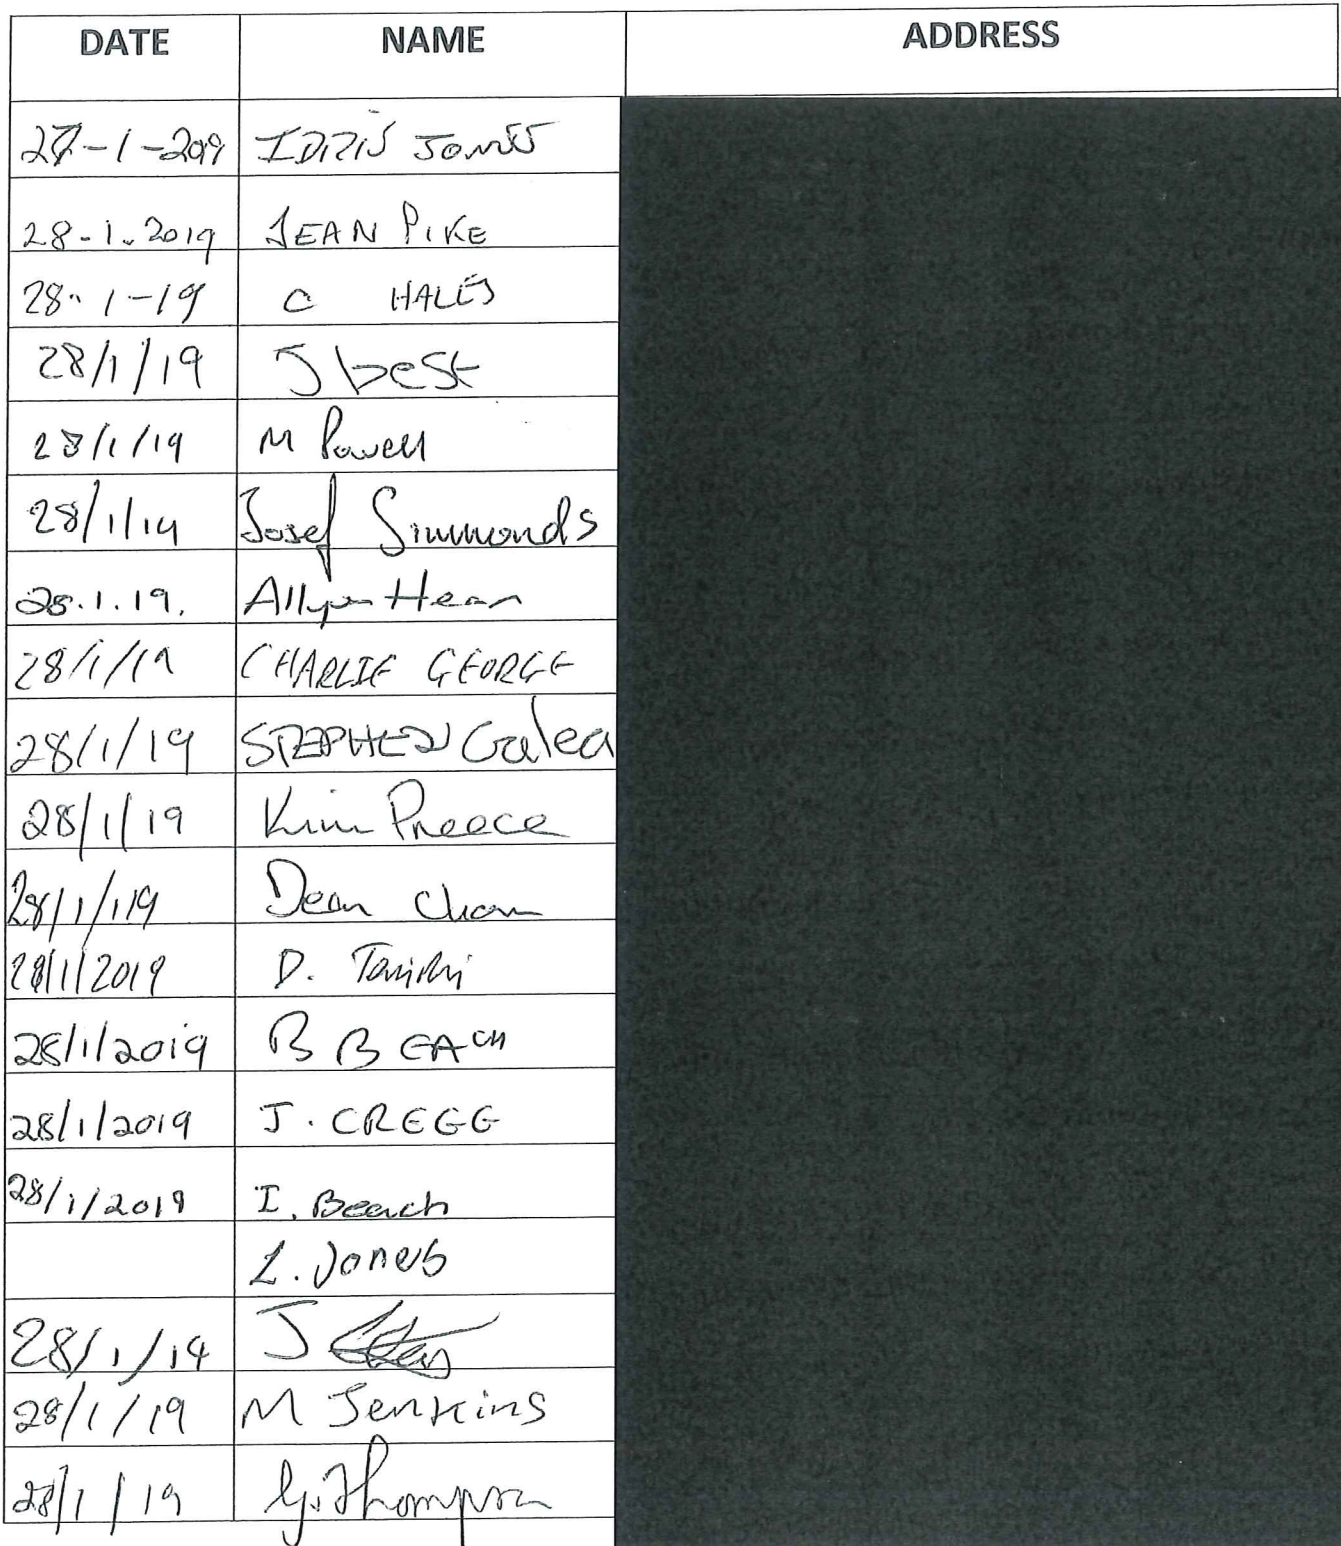 DATE NAME ADDRESS
27-1-2019 IDRIS JONES
28-1-2019 JEAN PIKE
28-1-19 C HALES
28/1/19 J best
28/1/19 M Powell
28/1/19 Josef Simmonds
28.1.19. Allyn Hean
28/1/19 CHARLIE GEORGE
28/1/19 STEPHEN Galea
28/1/19 Kim Preece
28/1/19 Dean
28/1/2019 D.
28/1/2019 B BEACH
28/1/2019 J. CREGG
28/1/2019 I. Beach
L. Jones
28/1/19 J
28/1/19 M Jenkins
28/1/19 G. Thompson